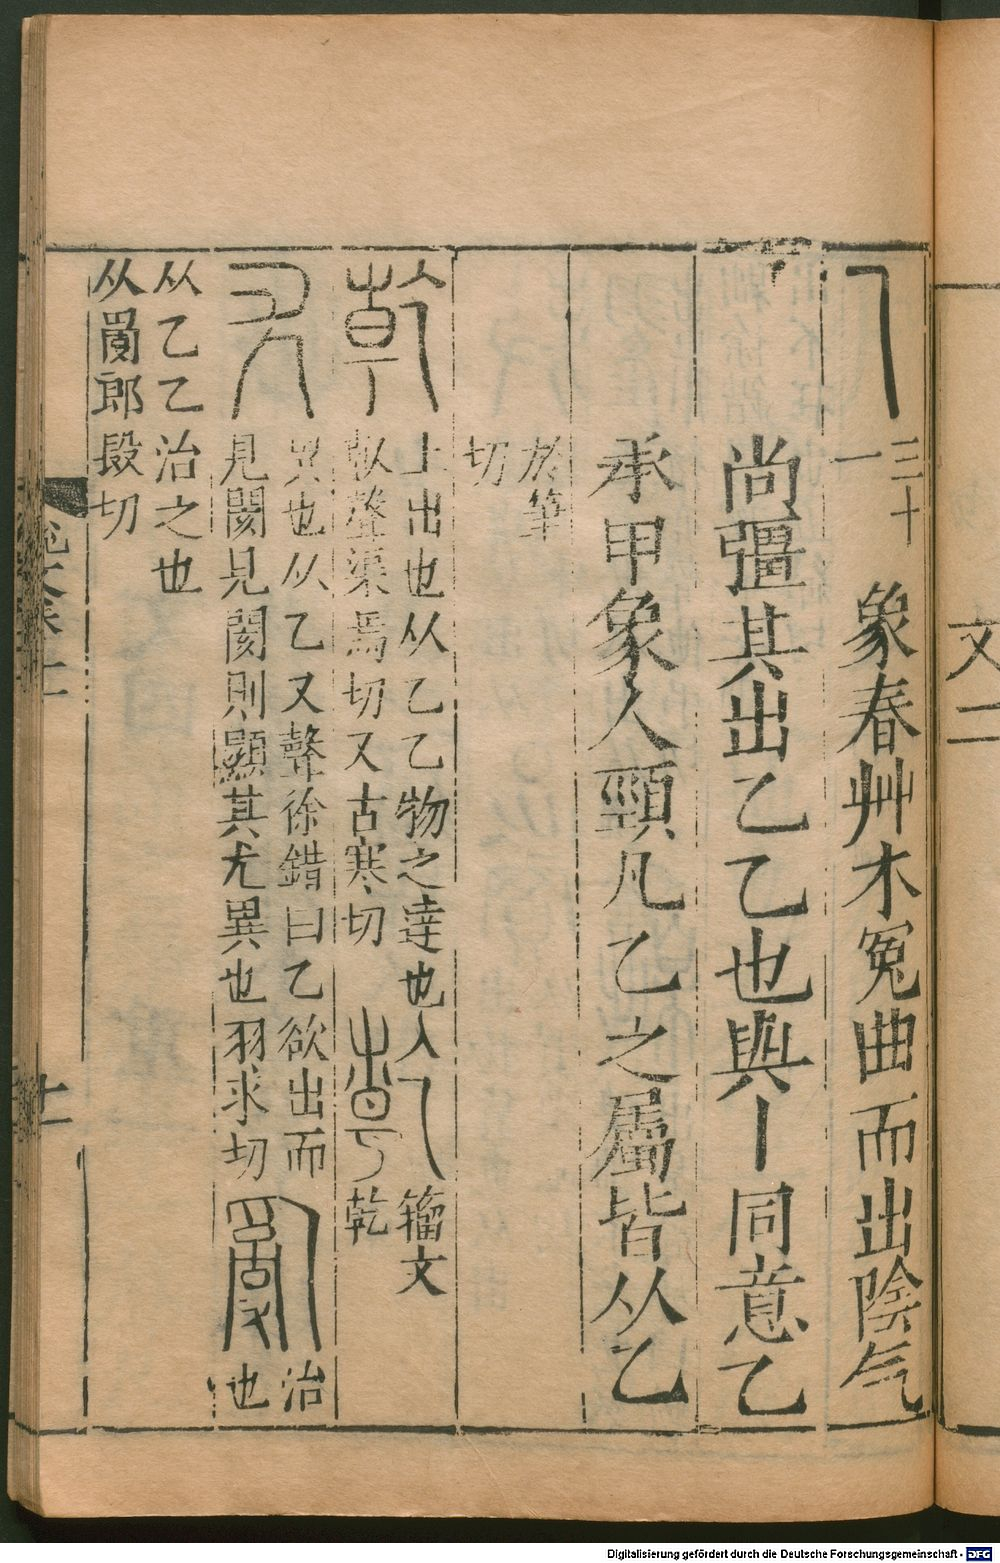 文二
乙
三十
一
象春艸木冤曲而出陰气
尚彊其出乙乙也與丨同意乙
承甲象人頸凡乙之屬皆从乙
於筆
切
乾
上出也从乙乙物之達也
倝聲渠焉切又古寒切
籒文
乾
尤
異也从乙又聲徐錯曰乙欲出而
見閡見閡則顯其尤異也羽求切
亂
治
也
从乙乙治之也
从𤔔郎段切
Digitalisierung gefördert durch die Deutsche Forschungsgemeinschaft - DFG